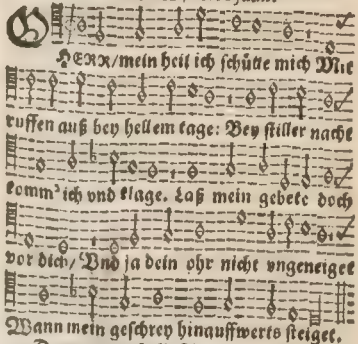 O
HERR/mein heil ich schütte mich Mit
ruffen auß bey hellem tage: Bey stiller nacht
komm' ich vnd klage. Laß mein gebete doch
vor dich/ Vnd ja dein ohr nicht vngeneiget
Wann mein geschrey hinauffwerts steiget.